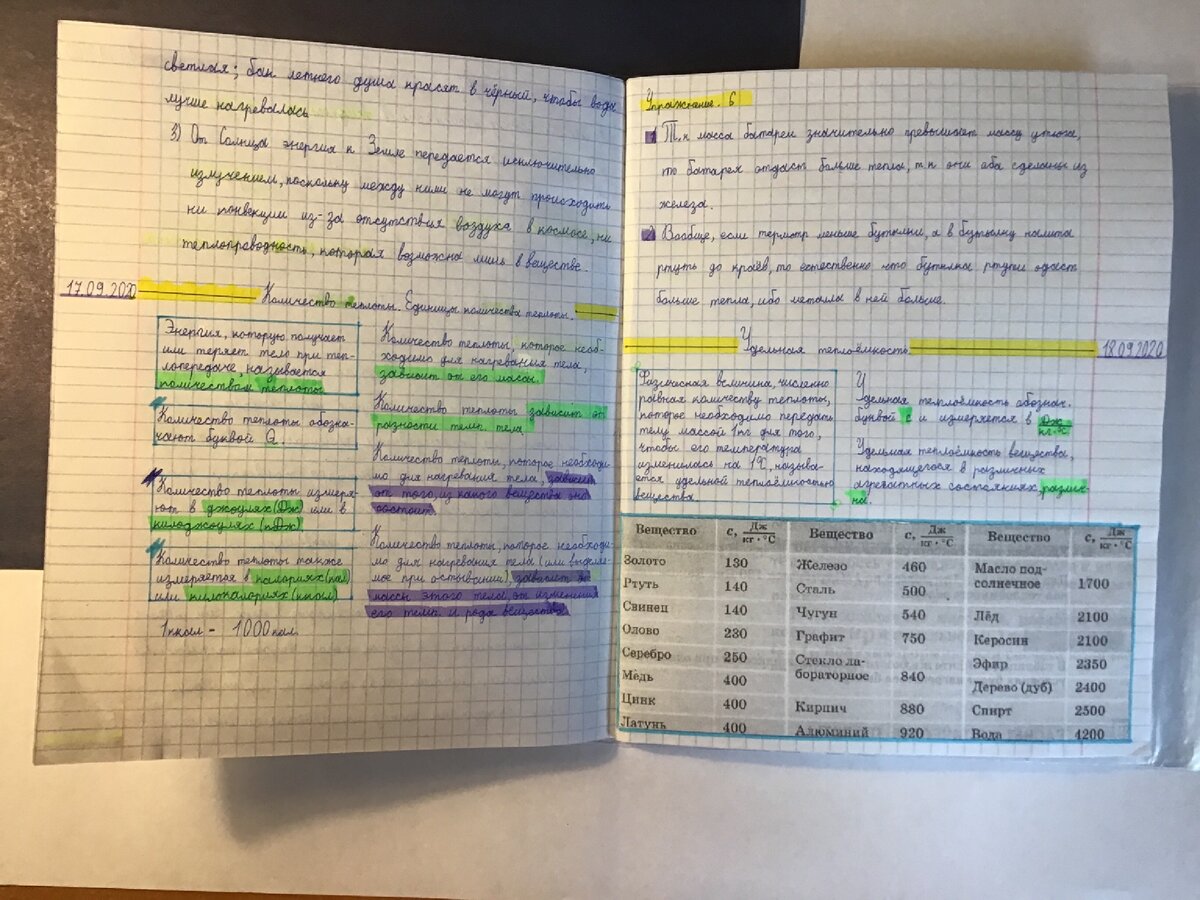 светлая; бак летнего душа красят в чёрный, чтобы вода
лучше нагревалась
3) От Солнца энергия к Земле передается исключительно
излучением, поскольку между ними не могут происходить
ни конвекции из-за отсутствия воздуха в космосе, ни
теплопроводность, которая возможна лишь в веществе.
17.09.2020
Количество теплоты. Единицы количества теплоты.
Энергия, которую получает
или теряет тело при теп-
лопередаче, называется
количеством теплоты
Количество теплоты обозна-
чают буквой Q.
Количество теплоты измеря-
ют в джоулях (Дж) или в
килоджоулях (кДж)
Количество теплоты также
измеряется в калориях (кал)
или килокалориях (ккал)
1 ккал = 1000 кал.
Количество теплоты, которое необ-
ходимо для нагревания тела,
зависит от его массы.
Количество теплоты зависит от
разности темп. тела.
Количество теплоты, которое необходи-
мо для нагревания тела, зависит
от того, из какого вещества оно
состоит.
Количество теплоты, которое необходи-
мо для нагревания тела (или выделяе-
мое при остывании), зависит от
массы этого тела, от изменения
его темп. и рода вещества.
Упражнение. 6
1 Т.к масса батареи значительно превышает массу утюга,
то батарея отдаст больше тепла, т.к они оба сделаны из
железа.
2 Вообще, если термотр меньше бутылки, а в бутылку налита
ртуть до краёв, то естественно что бутылка ртути одаст
больше тепла, ибо металла в ней больше.
Удельная теплоёмкость.
18.09.2020
Физическая величина, численно
равная количеству теплоты,
которое необходимо передать
телу массой 1кг для того,
чтобы его температура
изменилась на 1°C, называ-
ется удельной теплоёмкостью
вещества.
Удельная теплоёмкость обознач.
буквой c и измеряется в Дж/кг·°C
Удельная теплоёмкость вещества,
находящегося в различных
агрегатных состояниях, различ-
на
Вещество c, Дж/кг·°C Вещество c, Дж/кг·°C Вещество c, Дж/кг·°C
Золото 130 Железо 460 Масло под-
солнечное 1700
Ртуть 140 Сталь 500
Свинец 140 Чугун 540 Лёд 2100
Олово 230 Графит 750 Керосин 2100
Серебро 250 Стекло ла-
бораторное 840 Эфир 2350
Медь 400 Дерево (дуб) 2400
Цинк 400 Кирпич 880 Спирт 2500
Латунь 400 Алюминий 920 Вода 4200